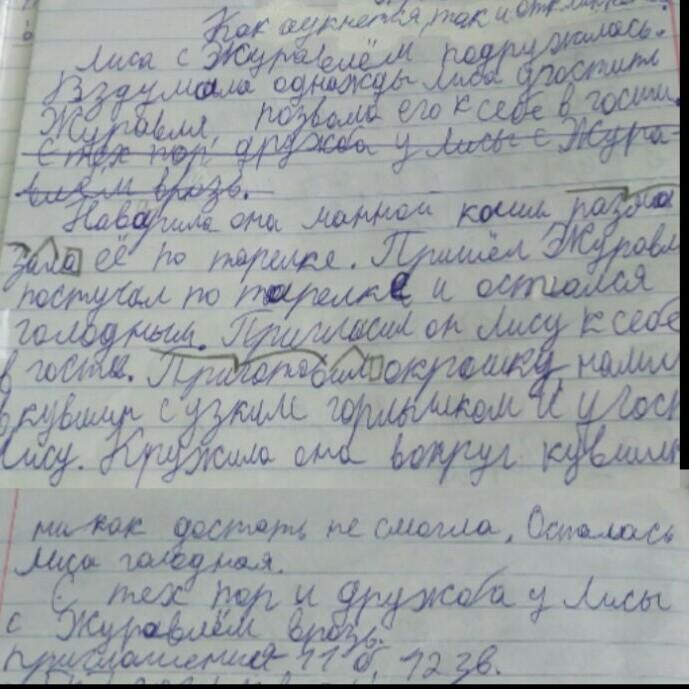 Как аукнется, так и откликнется
Лиса с Журавлём подружилась.
Вздумала однажды Лиса угостить
Журавля, позвала его к себе в гости.
С тех пор дружба у Лисы с Жура-
влём врозь.
Наварила она манной каши разма
зала её по тарелке. Пришёл Журавл
постучал по тарелке и остался
голодным. Пригласил он Лису к себе
в гости. Приготовил окрошку налил
в кувшин с узким горлышком и угос
Лису. Кружила она вокруг кувшин
никак достать не смогла. Осталась
Лиса голодная.
С тех пор и дружба у Лисы
с Журавлём врозь.
приглашения 11 б, 12 зв.